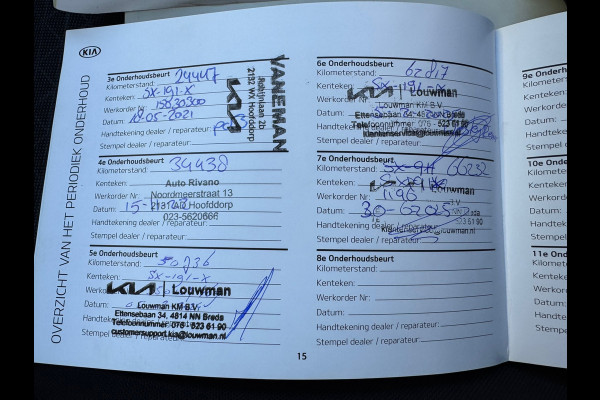 KIA
OVERZICHT VAN HET PERIODIEK ONDERHOUD
3e Onderhoudsbeurt
Kilometerstand: 24447
Kenteken: SX-191-X
Werkorder Nr: 15830300
Datum: 19-05-2021
Handtekening dealer / reparateur:
Stempel dealer / reparateur:
VANEMAN
Robijnlaan 2b
2132 WX Hoofddorp
KIA
4e Onderhoudsbeurt
Kilometerstand: 34438
Kenteken:
Werkorder Nr:
Datum: 15-
Handtekening dealer / reparateur:
Stempel dealer / reparateur:
Auto Rivano
Noordmeerstraat 13
2131 AD Hoofddorp
023-5620666
5e Onderhoudsbeurt
Kilometerstand: 50736
Kenteken: SX-191-X
Datum:
Stempel dealer
KIA | Louwman
Louwman KM B.V.
Ettensebaan 34, 4814 NN Breda
Telefoonnummer: 076 - 523 61 90
customersupport.kia@louwman.nl
6e Onderhoudsbeurt
Kilometerstand: 62817
Kenteken: SX-191-X
Werkorder Nr:
Datum:
Handtekening dealer / reparateur:
Stempel dealer / reparateur:
KIA | Louwman
Louwman KM B.V.
Ettensebaan 34, 4814 NN Breda
Telefoonnummer: 076 - 523 61 90
klantenservice@louwman.nl
7e Onderhoudsbeurt
Kilometerstand: 66232
Kenteken:
Werkorder Nr:
Datum: 30-6-2025
Handtekening dealer / reparateur:
Stempel dealer / reparateur:
Louwman
NN Breda
523 61 90
8e Onderhoudsbeurt
Kilometerstand:
Kenteken:
Werkorder Nr:
Datum:
Handtekening dealer / reparateur:
Stempel dealer / reparateur:
15
9e Onderh
Kilometerst
Kenteken:
Werkorder
Datum:
Handteken
Stempel de
10e Onder
Kilometers
Kenteken:
Werkorde
Datum:
Handteke
Stempel
11e Ond
Kilomete
Kenteke
Werkord
Datum:
Handte
Stempe